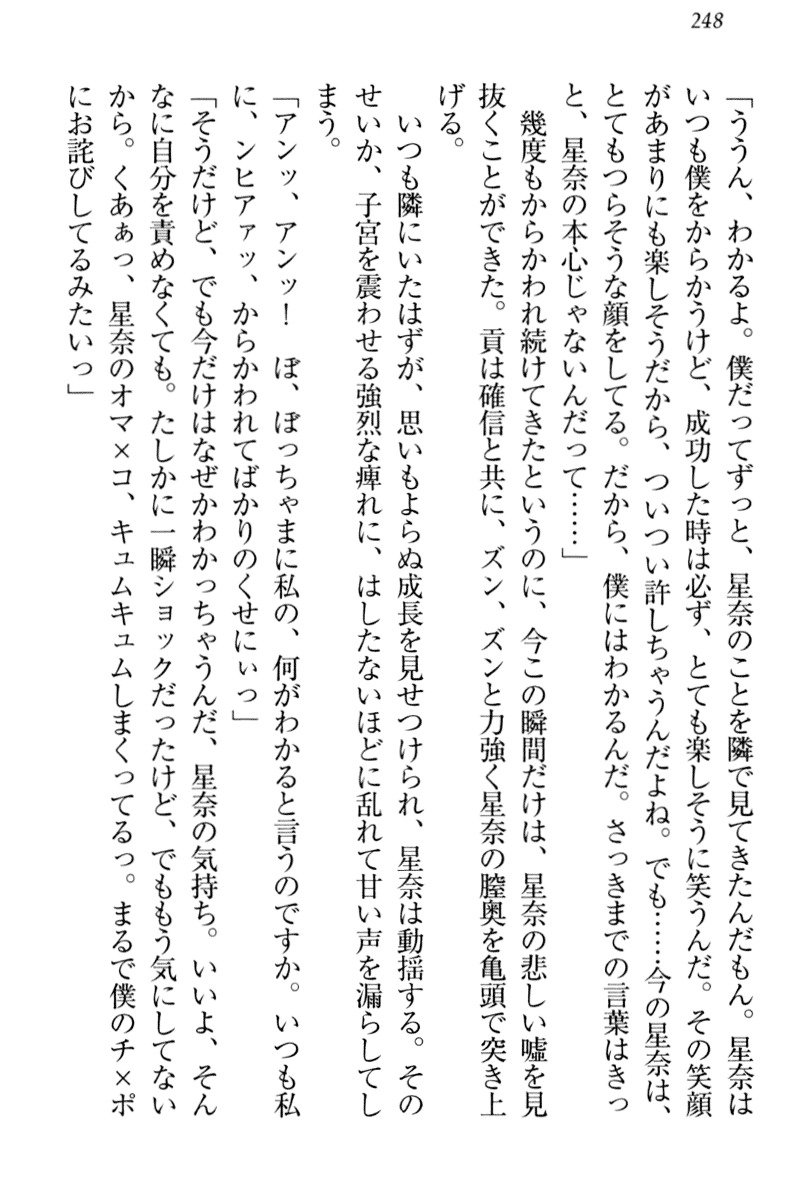 248
「ううん、わかるよ。僕だってずっと、星奈のことを隣で見てきたんだもん。星奈は
いつも僕をからかうけど、成功した時は必ず、とても楽しそうに笑うんだ。その笑顔
があまりにも楽しそうだから、ついつい許しちゃうんだよね。でも……今の星奈は、
とてもつらそうな顔をしてる。だから、僕にはわかるんだ。さっきまでの言葉はきっ
と、星奈の本心じゃないんだって……」
幾度もからかわれ続けてきたというのに、今この瞬間だけは、星奈の悲しい嘘を見
抜くことができた。貢は確信と共に、ズン、ズンと力強く星奈の膣奥を亀頭で突き上
げる。
いつも隣にいたはずが、思いもよらぬ成長を見せつけられ、星奈は動揺する。その
せいか、子宮を震わせる強烈な痺れに、はしたないほどに乱れて甘い声を漏らしてし
まう。
「アンッ、アンッ！　ぼ、ぼっちゃまに私の、何がわかると言うのですか。いつも私
に、ンヒアァッ、からかわれてばかりのくせにぃっ」
「そうだけど、でも今だけはなぜかわかっちゃうんだ、星奈の気持ち。いいよ、そん
なに自分を責めなくても。たしかに一瞬ショックだったけど、でももう気にしてない
から。くあぁっ、星奈のオマ×コ、キュムキュムしまくってるっ。まるで僕のチ×ポ
にお詫びしてるみたいっ」